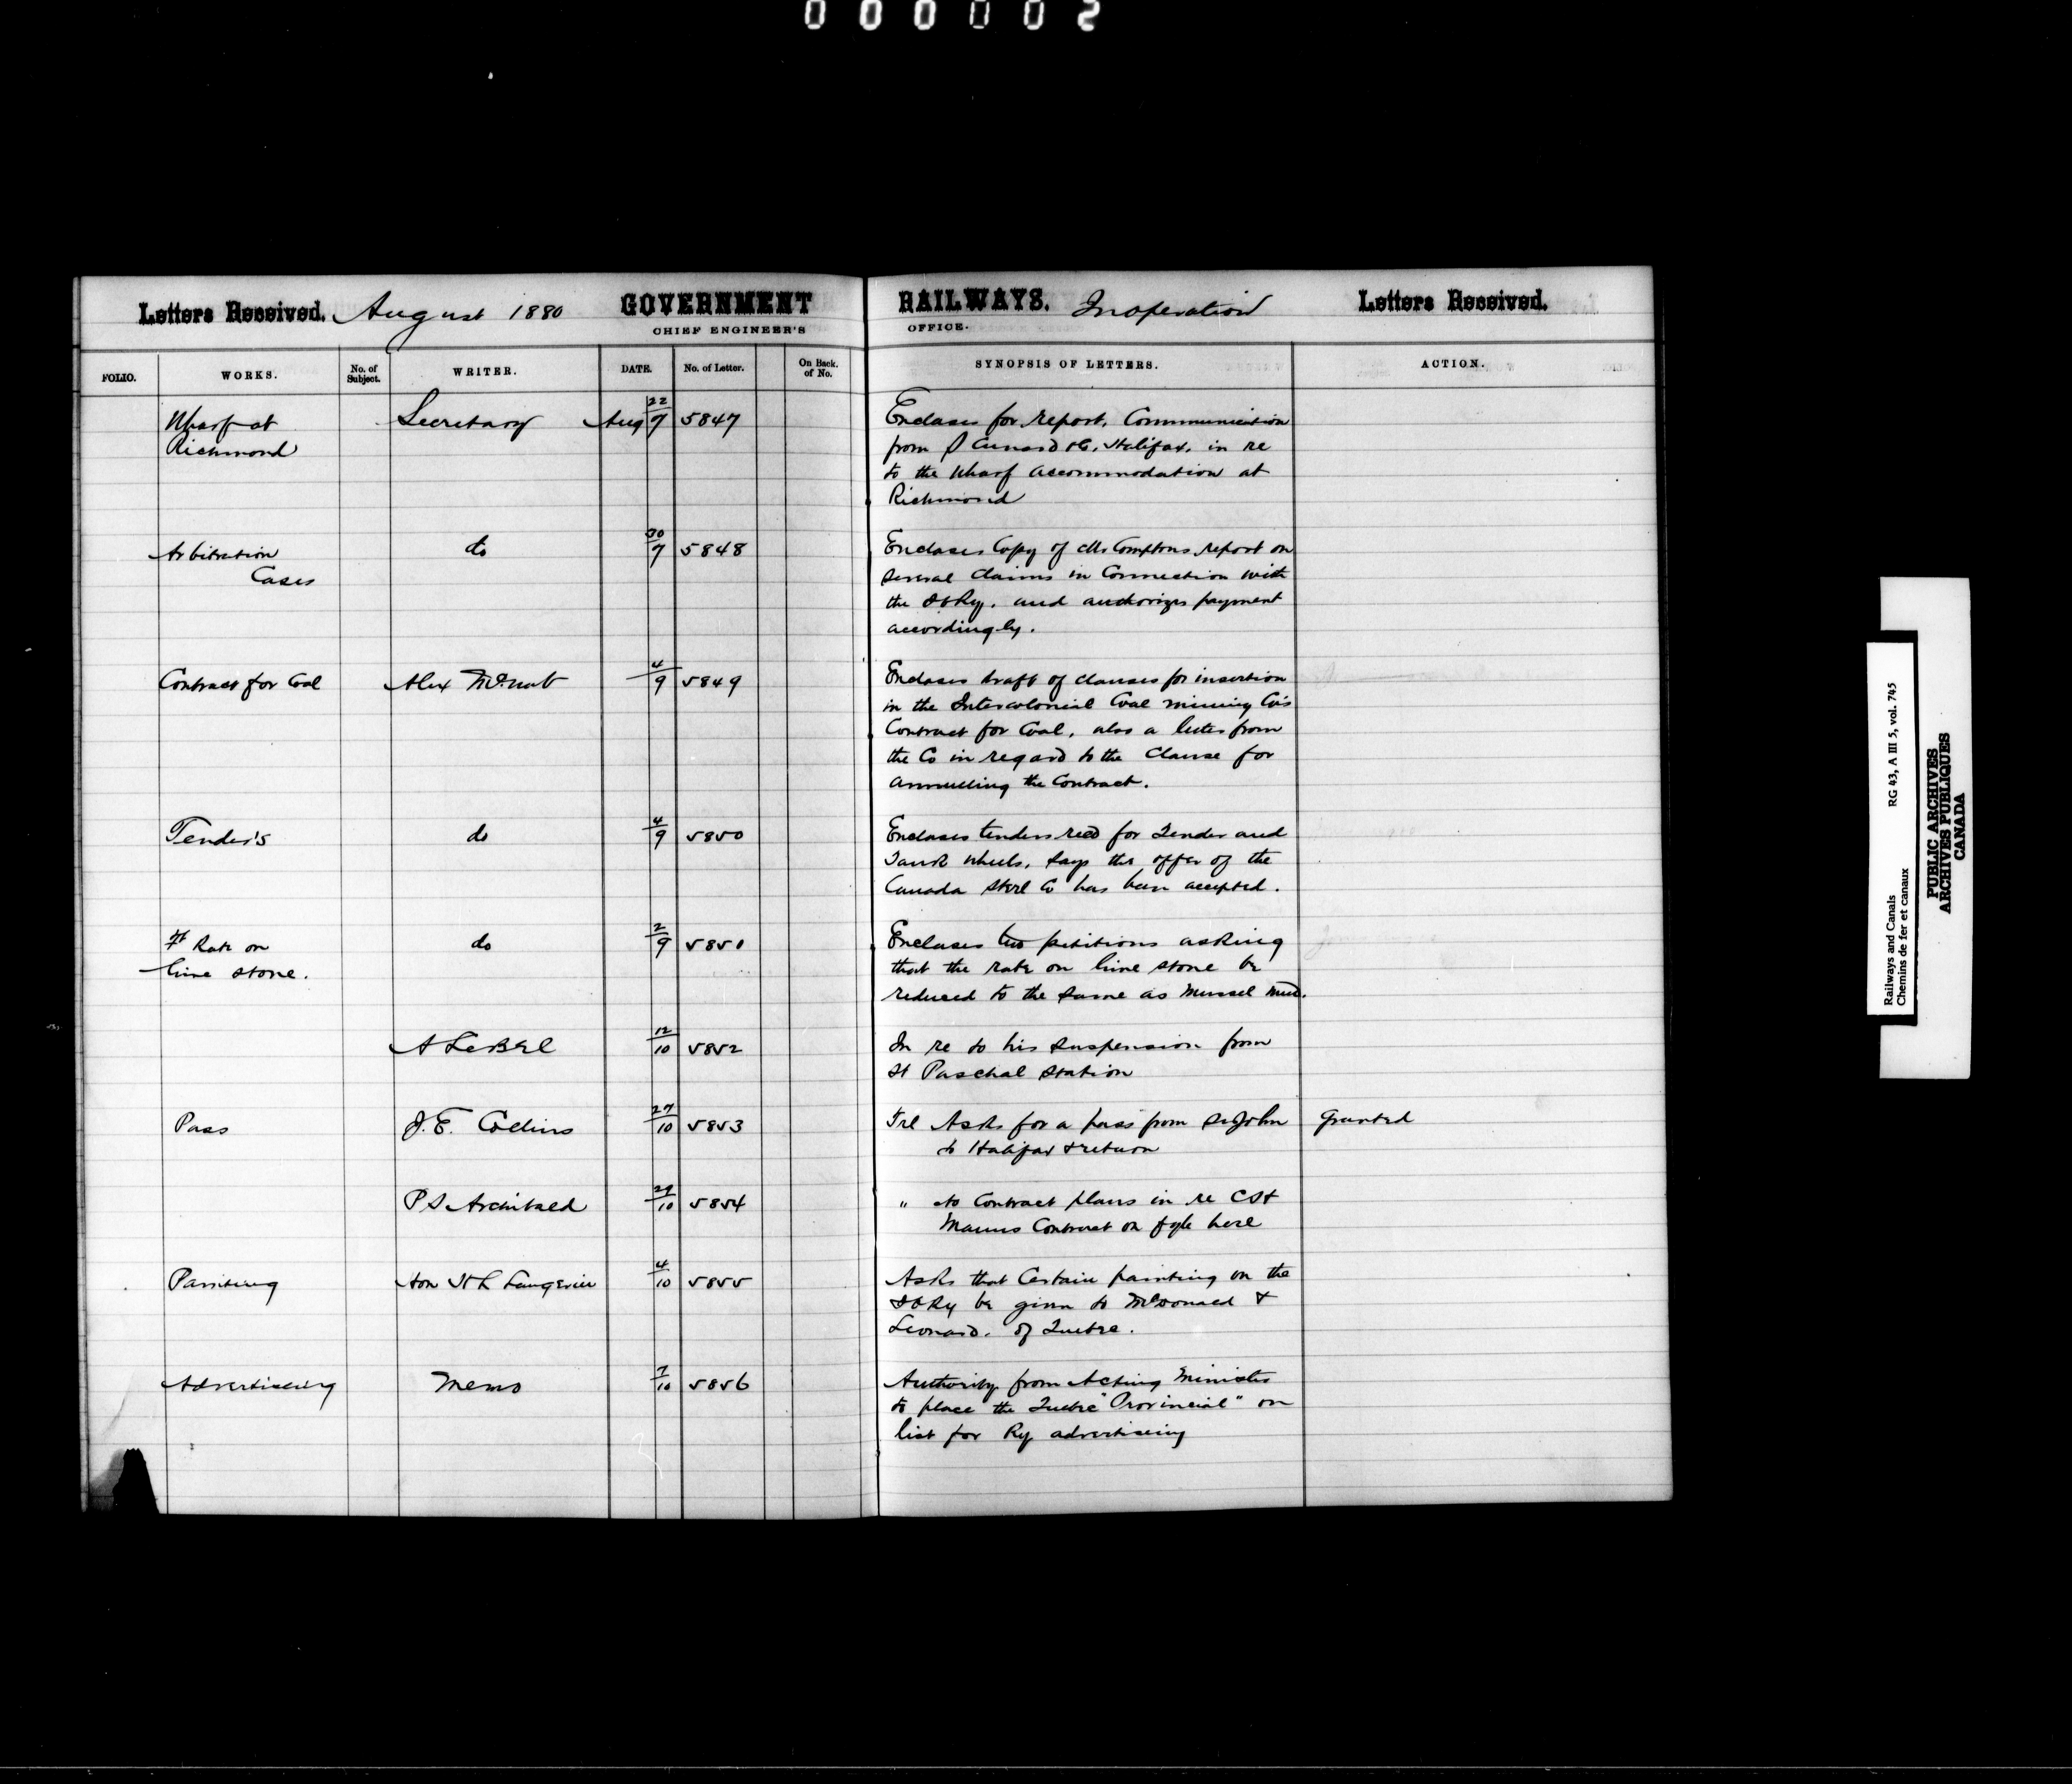 000002
Letters Received. August 1880 GOVERNMENT RAILWAYS. In operation Letters Received.
CHIEF ENGINEER'S OFFICE.
FOLIO. WORKS. No. of Subject. WRITER. DATE. No. of Letter. On Back. of No. SYNOPSIS OF LETTERS. ACTION.
Wharf at Secretary Aug 22/9 5847 Encloses for report, Communication
Richmond from S Cunard &Co, Halifax, in re
to the wharf accommodation at
Richmond
Arbitration do 30/9 5848 Encloses Copy of Mr Comptons report on
Cases several claims in Connection with
the ICRy. and authorizes payment
accordingly.
Contract for Coal Alex McNab 4/9 5849 Encloses draft of clauses for insertion
in the Intercolonial Coal mining Co's
Contract for Coal, also a letter from
the Co in regard to the Clause for
annulling the Contract.
Tender's do 4/9 5850 Encloses tenders recd for Tender and
Truck wheels, says the offer of the
Canada Steel Co has been accepted.
Ft Rate on do 2/9 5851 Encloses two petitions asking
lime stone. that the rate on lime stone be
reduced to the same as mussel mud.
A LeBel 12/10 5852 In re to his suspension from
St Paschal Station
Pass J.E. Collins 27/10 5853 Tel Asks for a pass from St John Granted
to Halifax & return
P S Archibald 29/10 5854 " to Contract plans in re
Manns Contract on fyle here
Painting Hon H L Langevin 4/10 5855 Asks that Certain painting on the
ICRy be given to McDonald &
Leonard. of Quebec.
Advertising Memo 7/10 5856 Authority from Acting Minister
to place the Quebec "Provincial" on
list for Ry advertising
Railways and Canals RG 43, A III 5, vol. 745
Chemins de fer et canaux
PUBLIC ARCHIVES
ARCHIVES PUBLIQUES
CANADA